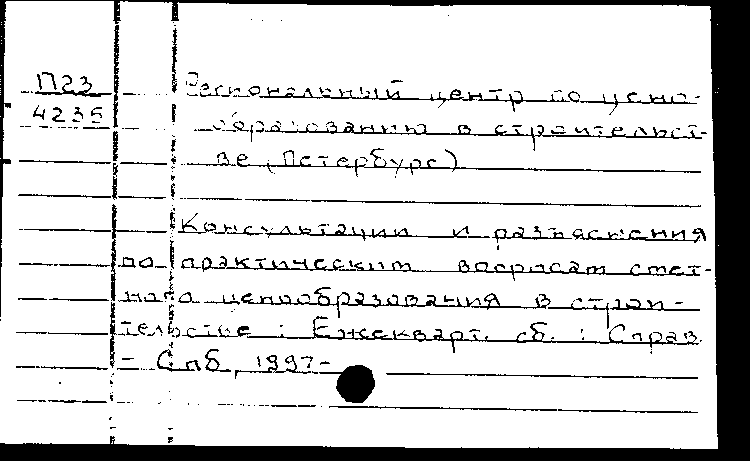 П23
4235
Региональный центр по цено-
образованию в строительст-
ве (Петербург)
Консультации и разъяснения
по практическим вопросам смет-
ного ценообразования в строи-
тельстве : Ежекварт. сб. : Справ.
- Спб, 1997-